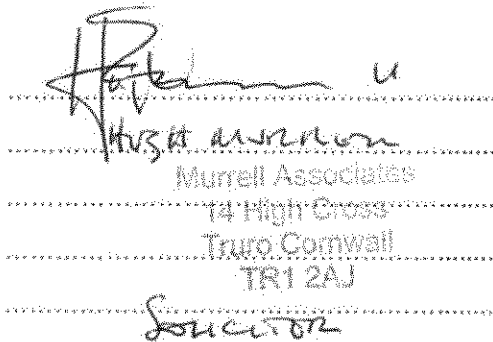 HUGH
Murrell Associates
14 High Cross
Truro Cornwall
TR1 2AJ
SOLICITOR